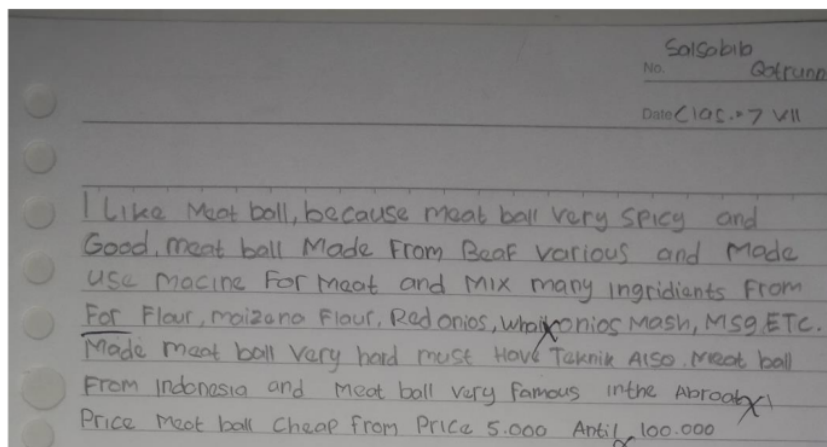 Salsabib
No. Qotrunn
Date Clas.:7 VII
I Like Meat ball, because meat ball very spicy and
Good. meat ball Made From Beaf various and Made
use macine For Meat and Mix many ingridients From
For Flour, maizena Flour, Red onios, whait onios Mash, MSG ETC.
Made meat ball very hard must Have Teknik Also. Meat ball
From Indonesia and Meat ball very famous inthe Abroat
Price Meat ball cheap from Price 5.000 Antil 100.000